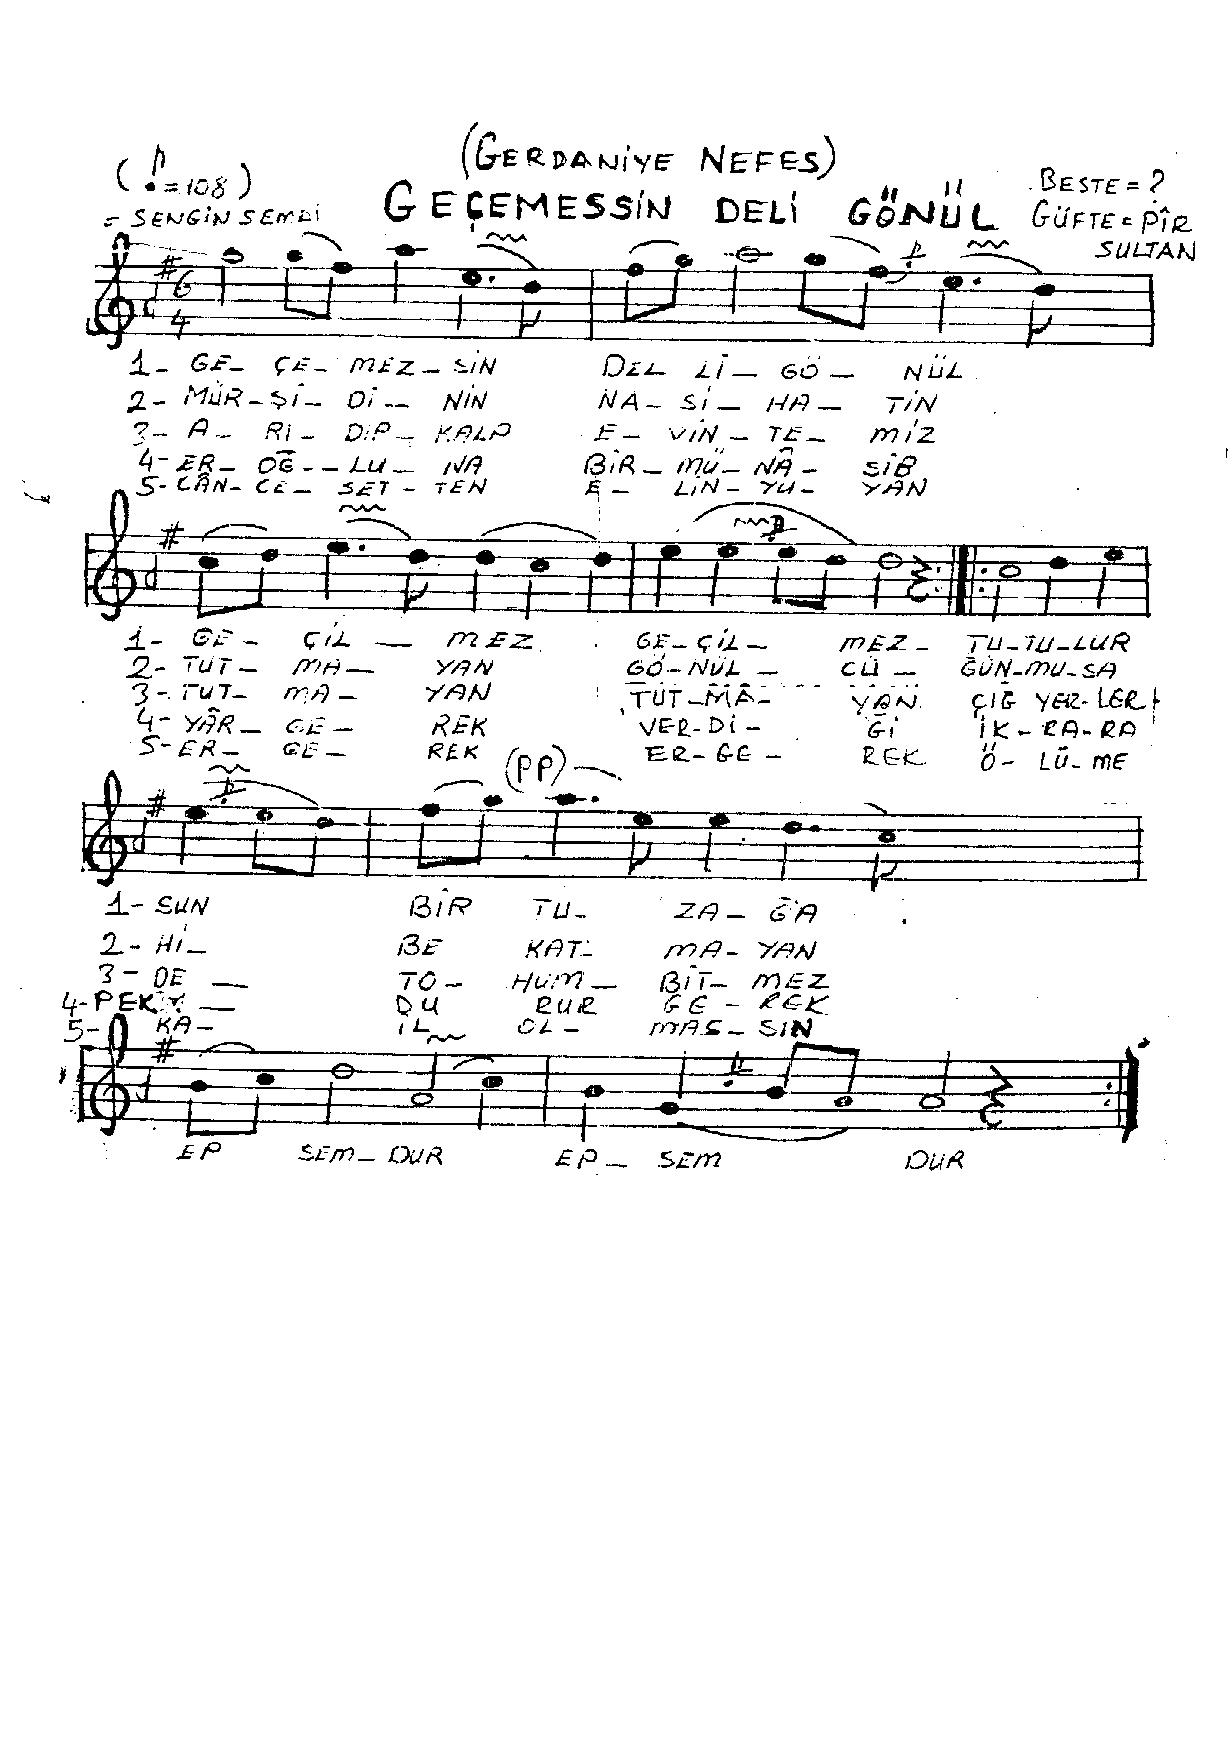 (GERDANİYE NEFES)
( ♪. = 108 )
= SENGİN SEMAİ
GEÇEMESSİN DELİ GÖNÜL
BESTE = ?
GÜFTE = PÎR
SULTAN
6
4
1- GE- ÇE- MEZ- SİN DEL Lİ- GÖ- NÜL
2- MÜR-Şİ- Dİ- NİN NA- Sİ- HA- TİN
3- A- RI- DIP- KALP E- VİN- TE- MİZ
4- ER- OĞ- LU- NA BİR- MÜ- NÂ- SİB
5- CÂN- CE- SET- TEN E- LİN- YU- YAN
1- GE- ÇİL- MEZ GE-ÇİL- MEZ- TU-TU-LUR
2- TUT- MA- YAN GÖ-NÜL- CÜ- ĞÜN-MU-SA
3- TUT- MA- YAN TUT-MA- YAN ÇİĞ YER-LER
4- YÂR- GE- REK VER-Dİ- Ğİ İK-RA-RA
5- ER- GE- REK ER-GE- REK Ö-LÜ-ME
(PP)
1- SUN BİR TU- ZA- ĞA
2- Hİ- BE KAT- MA- YAN
3- DE TO- HUM- BİT- MEZ
4- PEK DU RUR GE- REK
5- KA- İL OL- MAS- SIN
EP SEM- DUR EP- SEM DUR